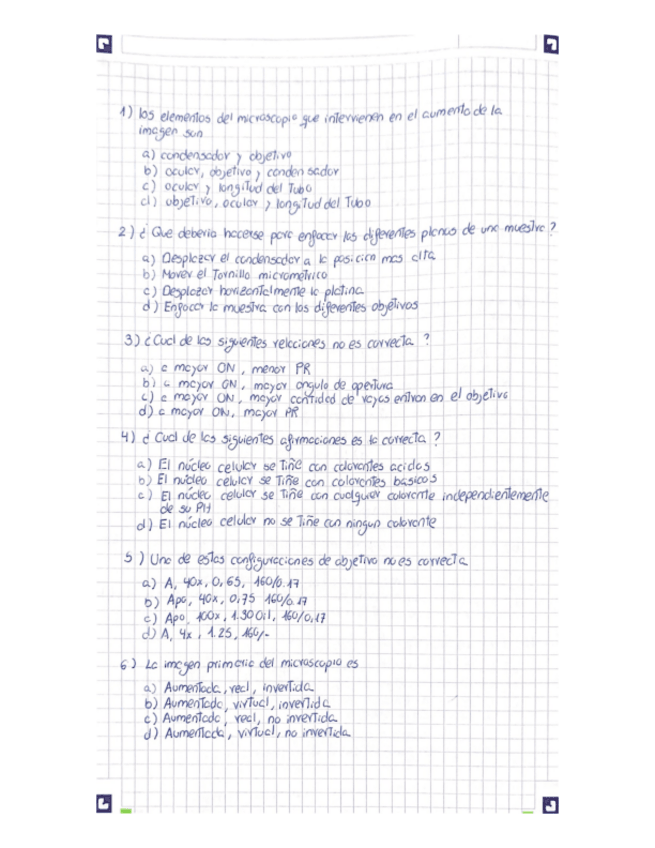 1) los elementos del microscopio que intervienen en el aumento de la
imagen son
a) condensador y objetivo
b) ocular, objetivo y condensador
c) ocular y longitud del Tubo
d) objetivo, ocular y longitud del Tubo
2) ¿ Que deberia hacerse para enfocar los diferentes planos de una muestra ?
a) Desplazar el condensador a la posicion mas alta
b) Mover el Tornillo micrometrico
c) Desplazar horizontalmente la platina
d) Enfocar la muestra con los diferentes objetivos
3) ¿Cual de las siguientes relaciones no es correcta ?
a) a mayor ON, menor PR
b) a mayor ON, mayor angulo de apertura
c) a mayor ON, mayor cantidad de rayos entran en el objetivo
d) a mayor ON, mayor PR
4) ¿ Cual de las siguientes afirmaciones es la correcta ?
a) El núcleo celular se Tiñe con colorantes acidos
b) El núcleo celular se Tiñe con colorantes basicos
c) El núcleo celular se Tiñe con cualquier colorante independientemente
de su PH
d) El núcleo celular no se Tiñe con ningun colorante
5) Una de estas configuraciones de objetivo no es correcta
a) A, 40x, 0,65, 160/0.17
b) Apo, 40x, 0,75 160/0.17
c) Apo, 100x, 1.30 Oil, 160/0,17
d) A, 4x, 1.25, 160/-
6) La imagen primaria del microscopio es
a) Aumentada, real, invertida
b) Aumentada, virtual, invertida
c) Aumentada, real, no invertida
d) Aumentada, virtual, no invertida